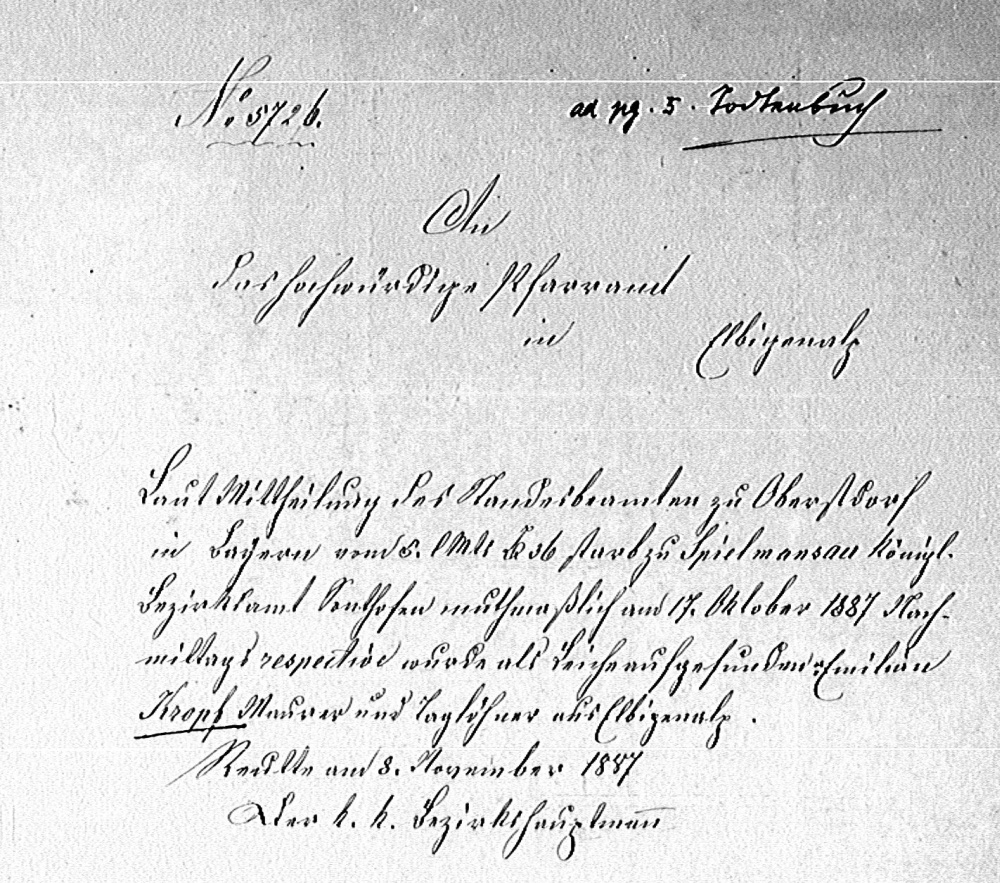 No 5726.
ad pg. 5. Todtenbuch
An
das hochwürdige Pfarramt
in Elbigenalp
Laut Mittheilung des Standesbeamten zu Oberstdorf
in Bayern vom 5. l Mts starb zu Spielmansau königl.
Bezirksamt Sonthofen muthmaßlich am 17. Oktober 1887 Nach-
mittags respective wurde als Leiche aufgefunden Emilian
Kropf Maurer und Taglöhner aus Elbigenalp.
Reutte am 8. November 1887
Der k. k. Bezirkshauptmann